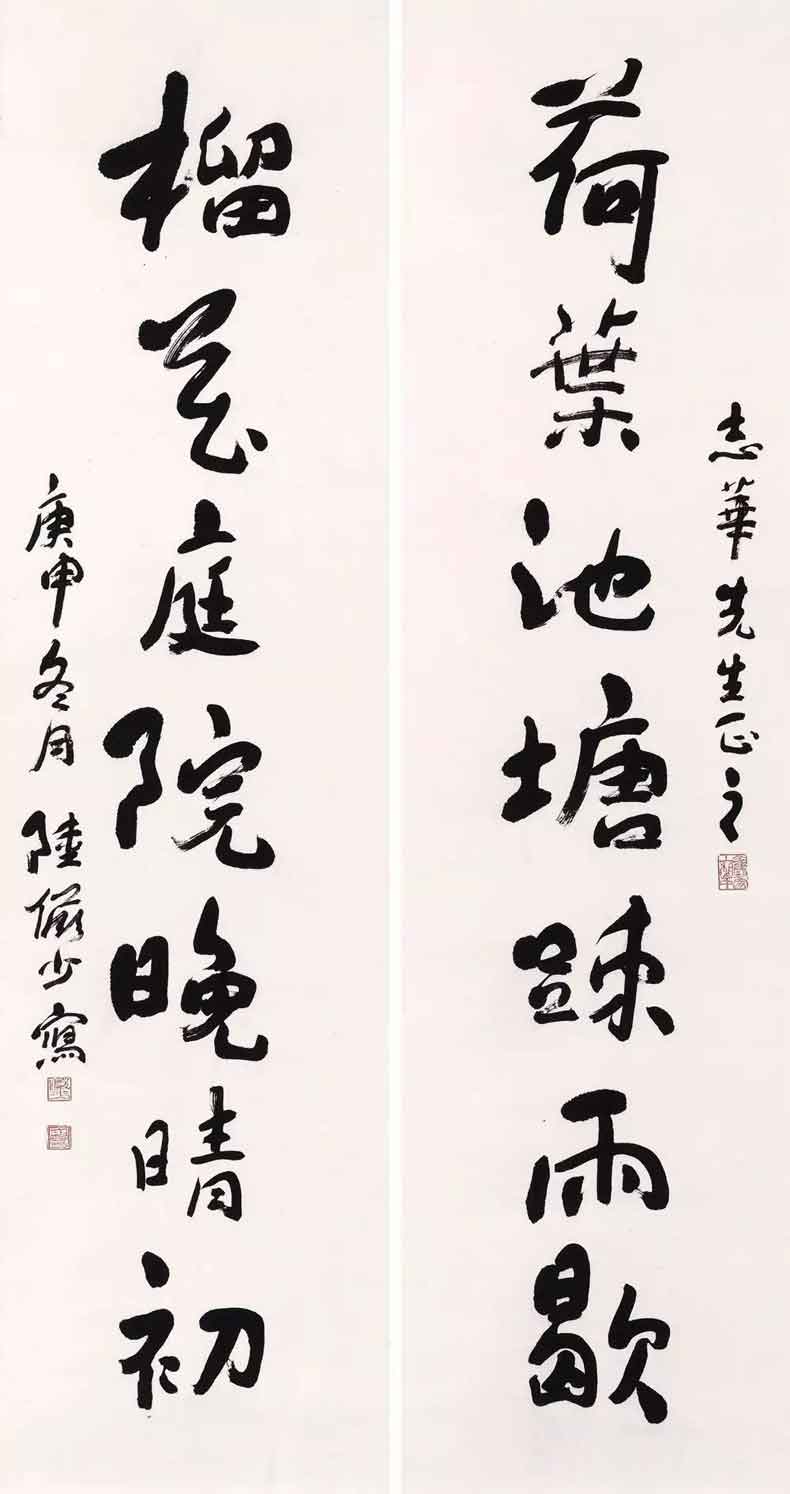 荷葉池塘踈雨歇
志華先生正之
榴花庭院晚晴初
庚申冬月陸儼少寫